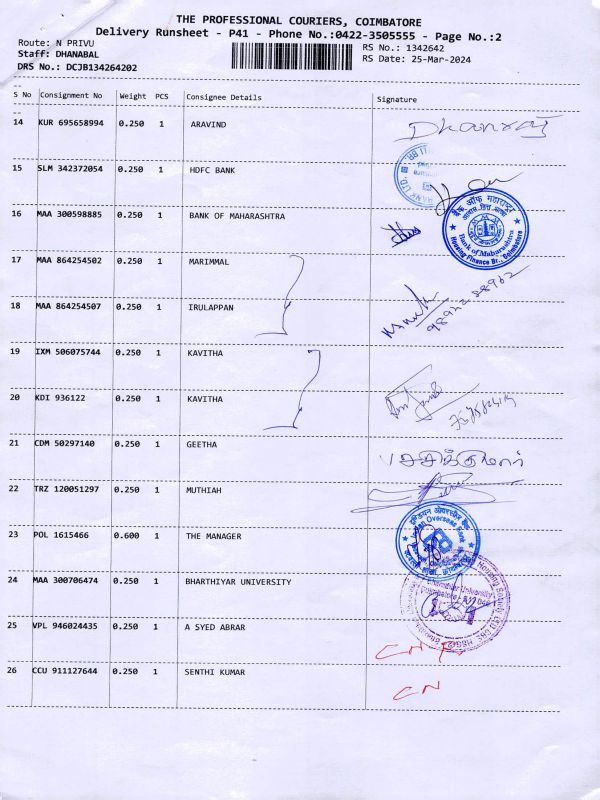 THE PROFESSIONAL COURIERS, COIMBATORE
Delivery Runsheet - P41 - Phone No.:0422-3505555 - Page No.:2
Route: N PRIVU
RS No.: 1342642
Staff: DHANABAL
RS Date: 25-Mar-2024
DRS No.: DCJB134264202
--
S No Consignment No Weight PCS Consignee Details Signature
--
14 KUR 695658994 0.250 1 ARAVIND Dhanraj
15 SLM 342372054 0.250 1 HDFC BANK
16 MAA 300598885 0.250 1 BANK OF MAHARASHTRA
बैंक ऑफ महाराष्ट्र
Bank of Maharashtra
Housing Finance Br., Coimbatore
17 MAA 864254502 0.250 1 MARIMMAL
18 MAA 864254507 0.250 1 IRULAPPAN
19 IXM 506075744 0.250 1 KAVITHA
20 KDI 936122 0.250 1 KAVITHA
21 CDM 50297140 0.250 1 GEETHA
22 TRZ 120051297 0.250 1 MUTHIAH
23 POL 1615466 0.600 1 THE MANAGER
Overseas Bank
24 MAA 300706474 0.250 1 BHARTHIYAR UNIVERSITY
University
25 VPL 946024435 0.250 1 A SYED ABRAR
26 CCU 911127644 0.250 1 SENTHI KUMAR CN